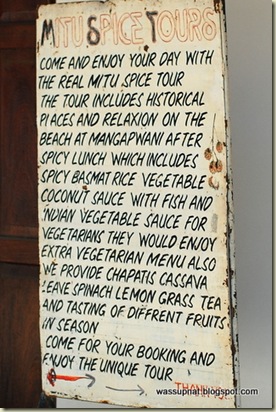 MITU SPICE TOURS
COME AND ENJOY YOUR DAY WITH
THE REAL MITU SPICE TOUR
THE TOUR INCLUDES HISTORICAL
PLACES AND RELAXION ON THE
BEACH AT MANGAPWANI AFTER
SPICY LUNCH WHICH INCLUDES
SPICY BASMAT RICE VEGETABLE
COCONUT SAUCE WITH FISH AND
INDIAN VEGETABLE SAUCE FOR
VEGETARIANS THEY WOULD ENJOY
EXTRA VEGETARIAN MENU ALSO
WE PROVIDE CHAPATIS CASSAVA
LEAVE SPINACH LEMON GRASS TEA
AND TASTING OF DIFFRENT FRUITS
IN SEASON
COME FOR YOUR BOOKING AND
ENJOY THE UNIQUE TOUR
wassupnat.blogspot.com